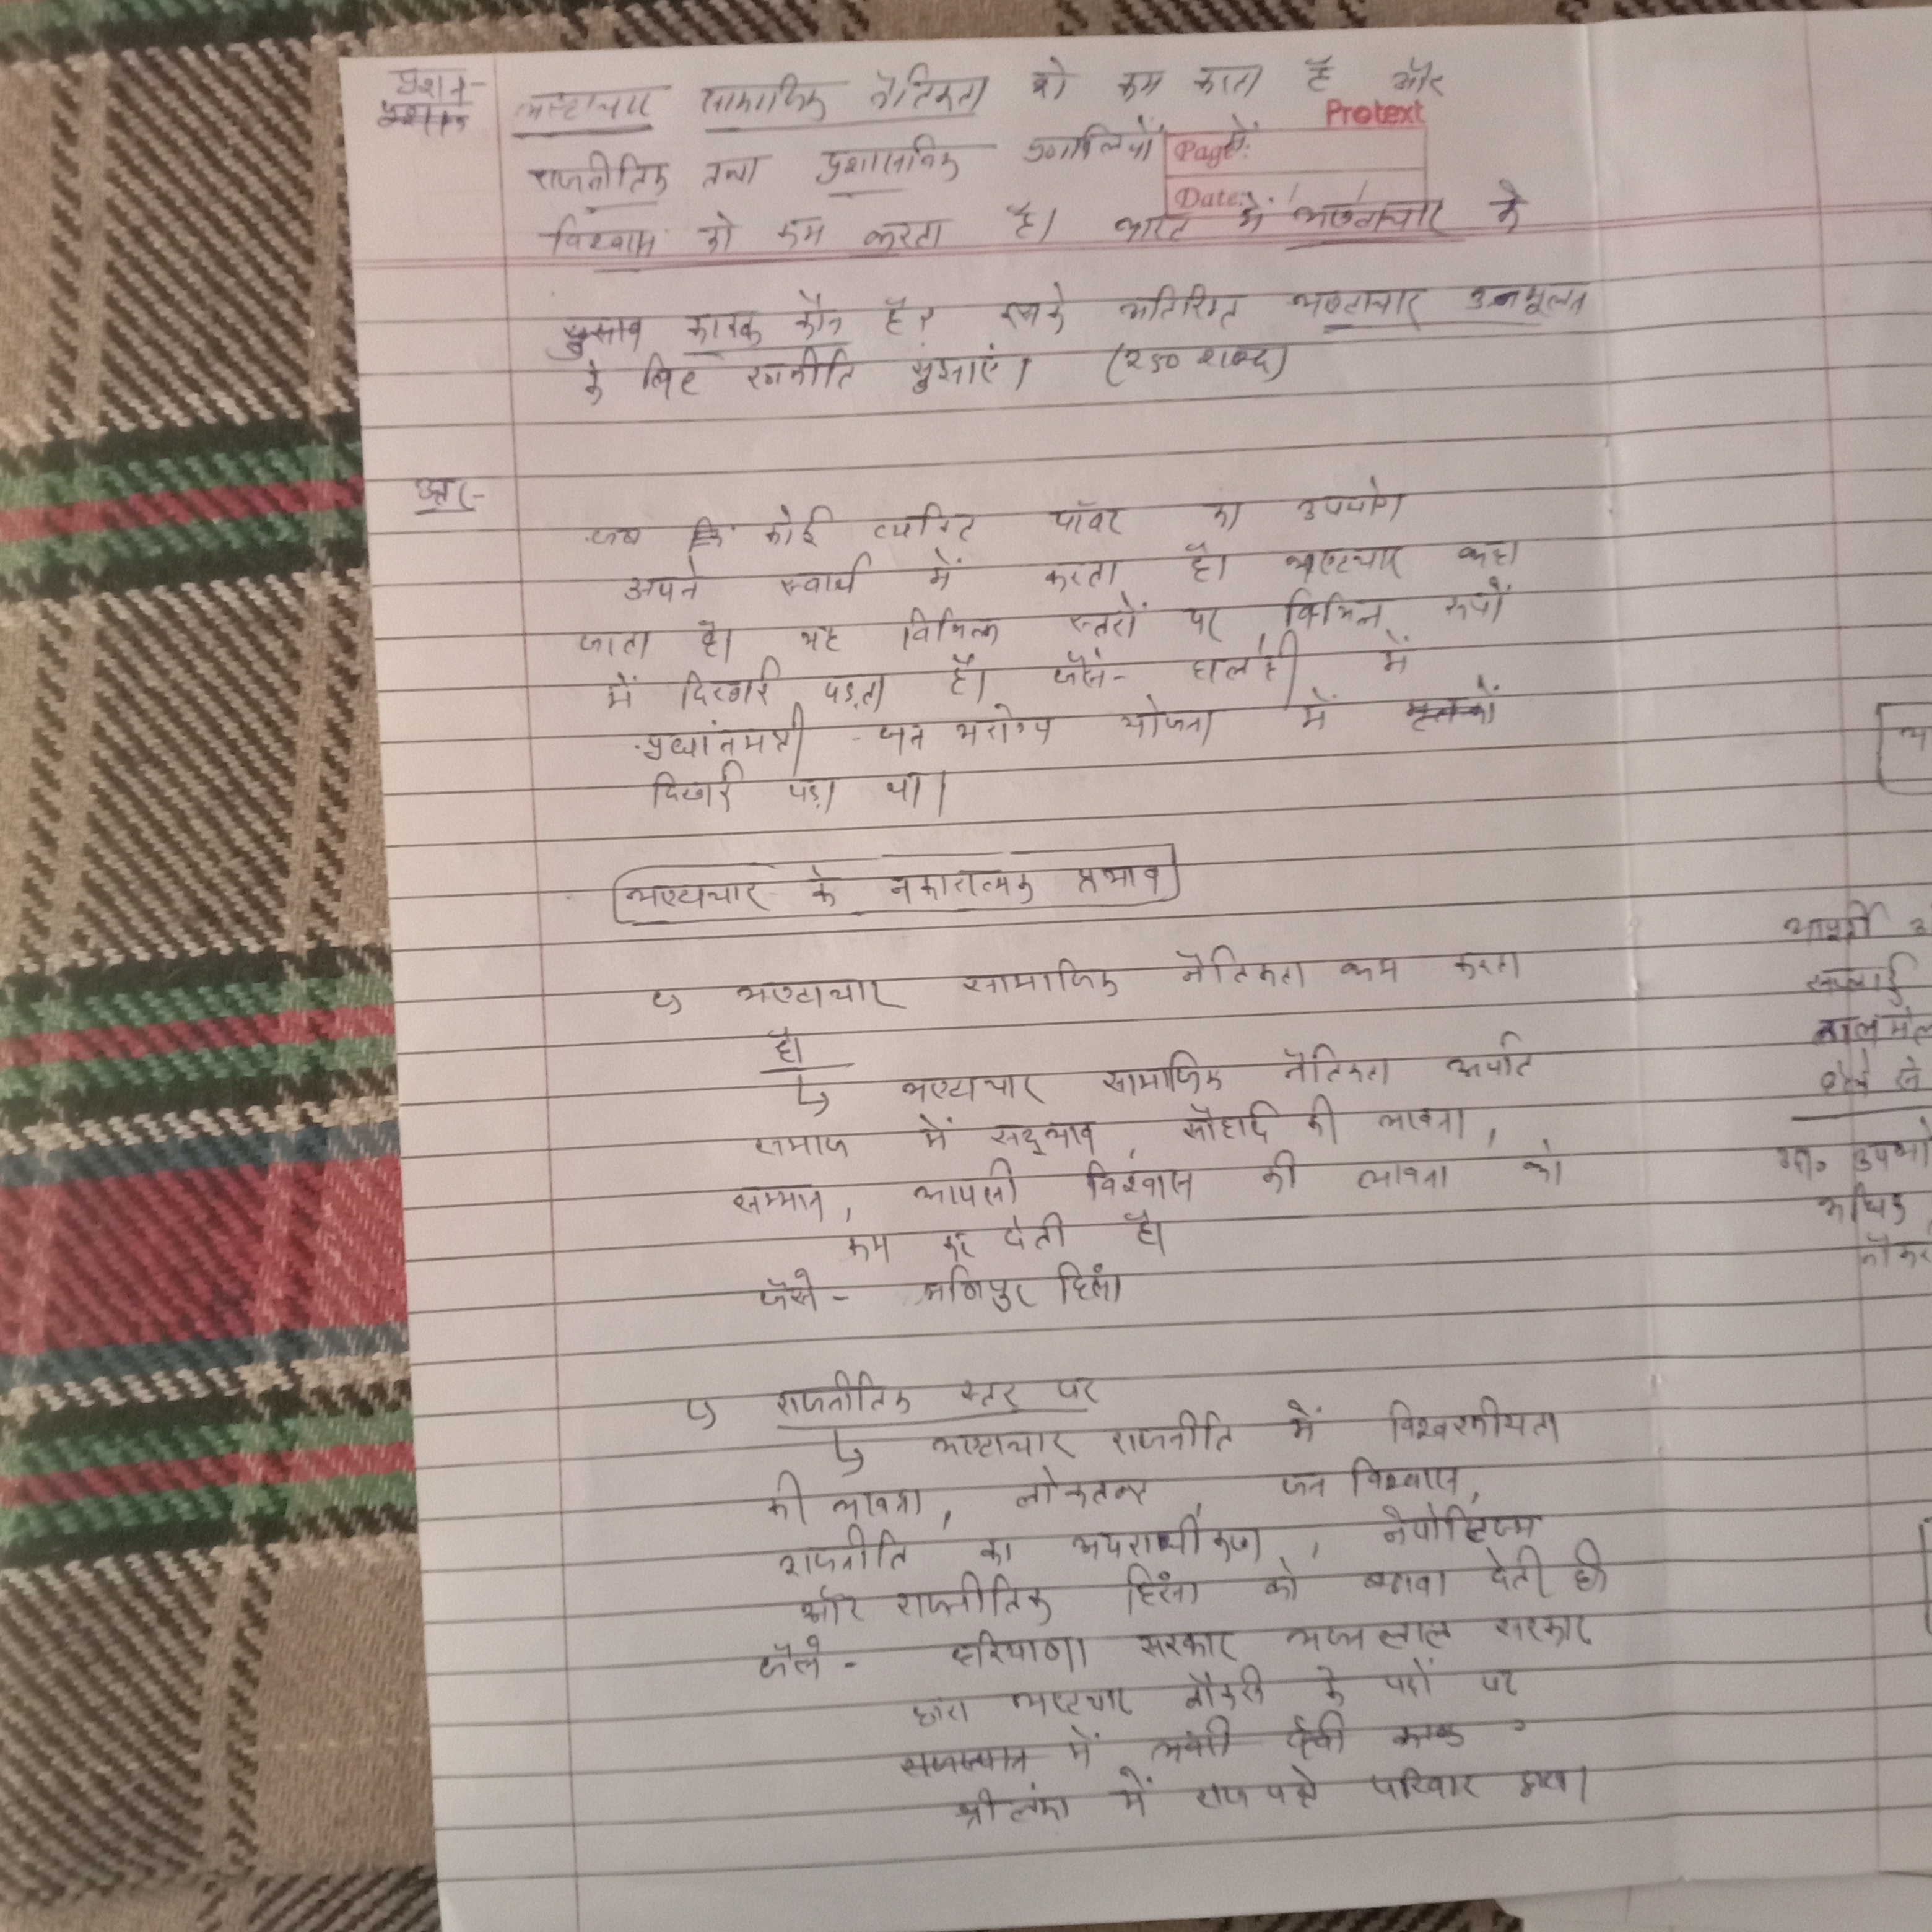 प्रश्न-
भ्रष्टाचार सामाजिक नैतिकता को कम करता है और
Protext
राजनीतिक तथा प्रशासनिक प्रणालियों में
Page:
Date: / /
विश्वास को कम करता है। भारत में भ्रष्टाचार के
कारक कौन है? इसके अतिरिक्त भ्रष्टाचार उन्मूलन
के लिए रणनीति सुझाएं। (250 शब्द)
उत्तर-
जब कोई व्यक्ति पॉवर का उपयोग
अपने स्वार्थ में करता है। भ्रष्टचार कहा
जाता है। यह विभिन्न स्तरों पर विभिन्न रूपों
में दिखाई पड़ता है। जैसे- हाल ही में
प्रधांनमंत्री -जन आरोग्य योजना में
दिखाई पड़ा था।
भ्रष्टाचार के नकारात्मक प्रभाव
↳ भ्रष्टाचार सामाजिक नैतिकता कम करता
है।
↳ भ्रष्टाचार सामाजिक नैतिकता अर्थात
समाज में सद्भाव, सौहार्द की भावना,
सम्मान, आपसी विश्वास की भावना को
कम कर देती है।
जैसे - मणिपुर हिंसा
↳ राजनीतिक स्तर पर
↳ भ्रष्टाचार राजनीति में विश्वसनीयता
की भावना, लोकतन्त्र, जन विश्वास,
राजनीति का अपराधीकरण, नेपोटिज्म
और राजनीतिक हिंसा को बढावा देती है।
जैसे - हरियाणा सरकार भजनलाल सरकार
द्वारा भ्रष्टचार नौकरी के पदों पर
राजस्थान में
श्रीलंका में राजपक्षे परिवार द्वारा।
सप्लाई
तालमेल
अधिक